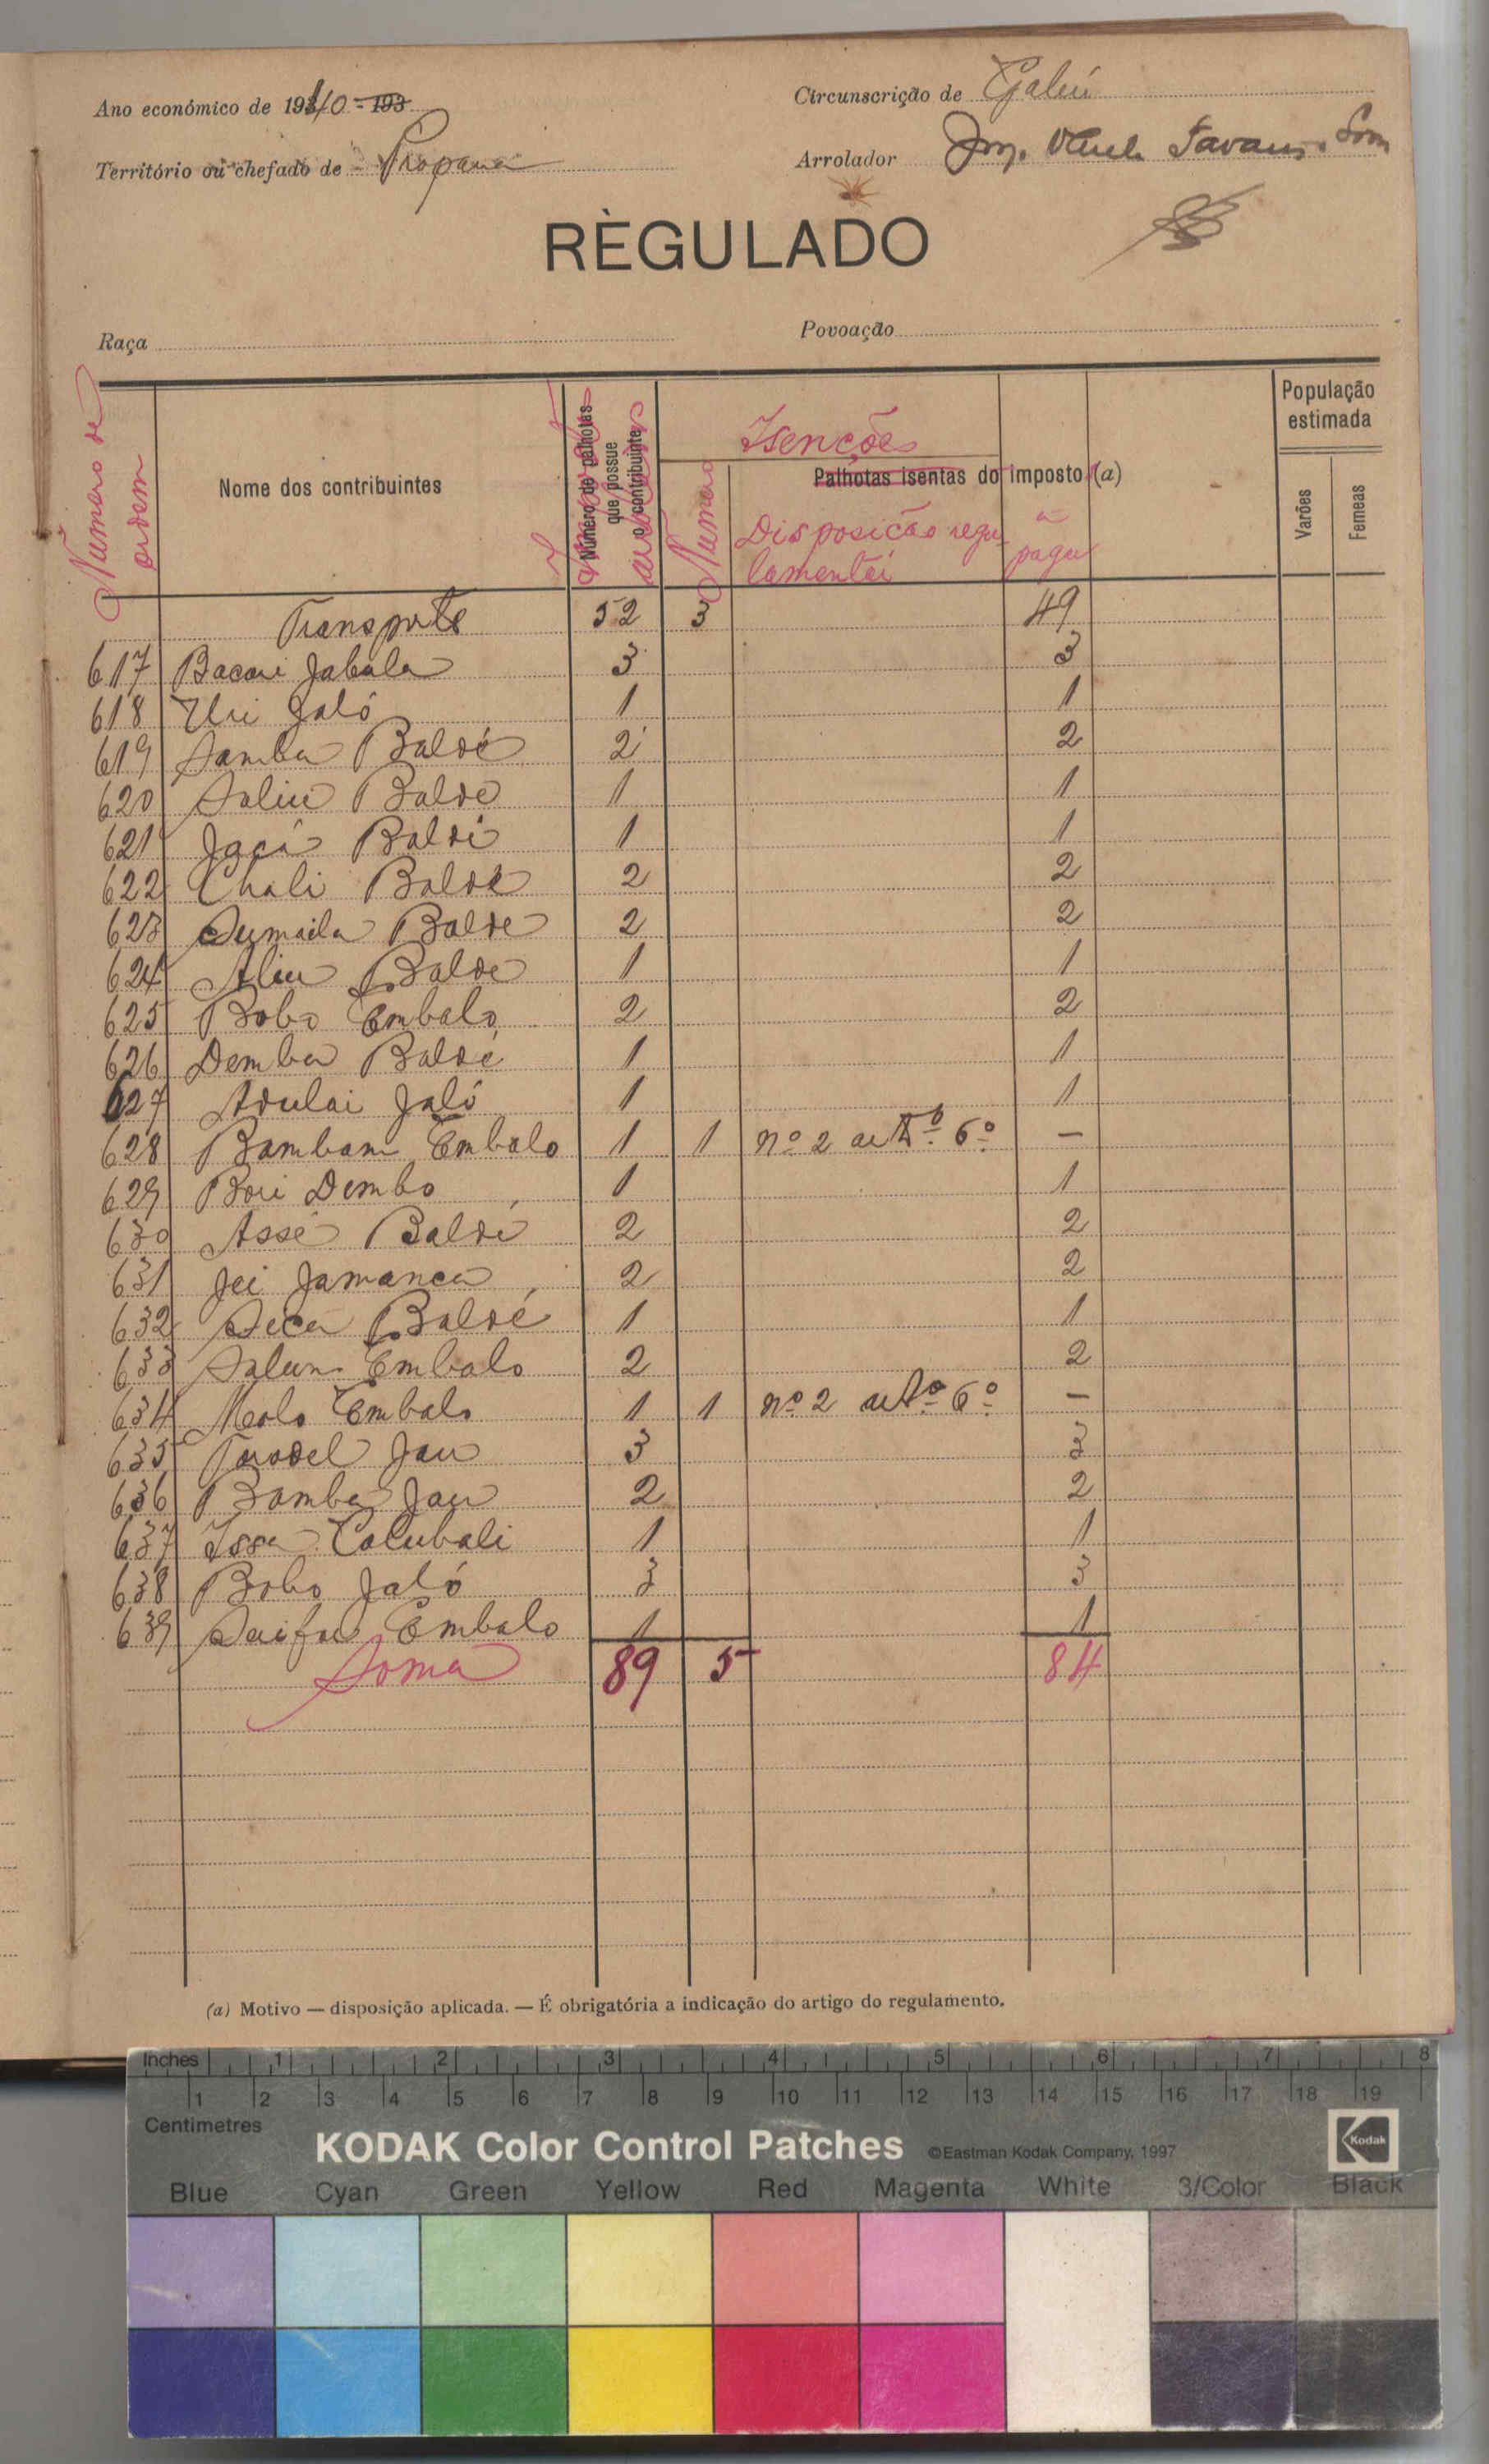 Ano económico de 1940 - 193
Circunscrição de Gabú
Território ou chefado de Propana
Arrolador
RÈGULADO
Raça
Povoação
Número de ordem
Nome dos contribuintes
Número de palhotas que possue o contribuinte
Isenções
Palhotas isentas do imposto (a)
Número
Disposição regulamentar
a pagar
População estimada
Varões
Femeas
Transporte 52 3 49
617 Bacari Jabula 3 3
618 Uri Jaló 1 1
619 Samba Baldé 2 2
620 Saliu Balde 1 1
621 Jaçá Baldé 1 1
622 Chali Baldé 2 2
623 Sumaila Balde 2 2
624 Aliu Balde 1 1
625 Bobo Embalo 2 2
626 Demba Baldé 1 1
627 Adulai Jaló 1 1
628 Bambam Embalo 1 1 nº 2 artº 6º —
629 Bori Dembo 1 1
630 Assé Baldé 2 2
631 Jei Jamanca 2 2
632 Seca Baldé 1 1
633 Salum Embalo 2 2
634 Molo Embalo 1 1 nº 2 artº 6º —
635 Jau 3 3
636 Bamba Jau 2 2
637 Issa Colubali 1 1
638 Bobo Jaló 3 3
639 Saifu Embalo 1 1
Soma 89 5 84
(a) Motivo — disposição aplicada. — É obrigatória a indicação do artigo do regulamento.
Inches 1 2 3 4 5 6 7 8
1 2 3 4 5 6 7 8 9 10 11 12 13 14 15 16 17 18 19
Centimetres
KODAK Color Control Patches ©Eastman Kodak Company, 1997 Kodak
Blue Cyan Green Yellow Red Magenta White 3/Color Black